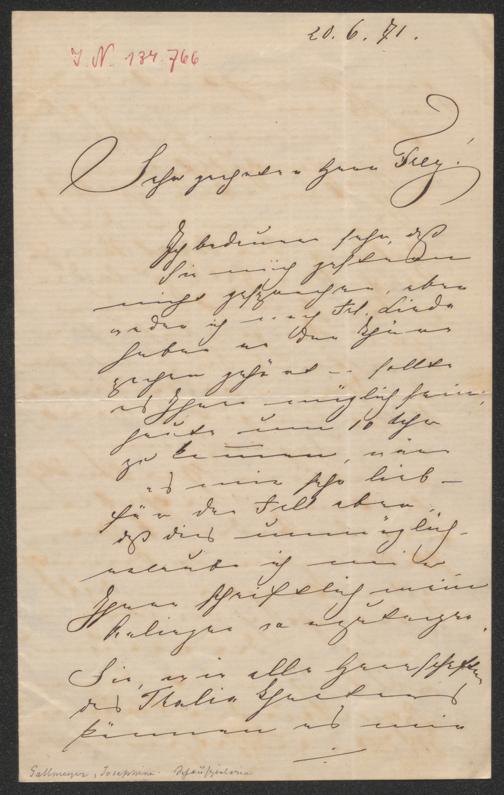 20. 6. 71.
I. N. 134.766
Sehr geehrter Herr Frey!
Ich bedaure sehr, daß
Sie mich gestern
nicht gesprochen, aber
weder ich noch Frl. Linda
haben an der Thüre
pochen gehört – sollte
es Ihnen möglich sein,
heute um 10 Uhr
zu kommen, wäre
es mir sehr lieb –
für den Fall aber,
daß dies unmöglich,
erlaube ich mir
Ihnen schriftlich mein
Anliegen vorzutragen.
Sie, wie alle Herrschaften
des Thalia Theaters
können es mir
Gallmeyer, Josephine. Schauspielerin